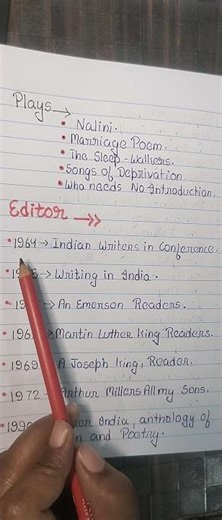 Plays →
• Nalini.
• Marriage Poem.
• The Sleep-Walkers.
• Songs of Deprivation
• Who needs No Introduction.
Editor →→
• 1964 → Indian Writers in Conference.
→ Writing in India.
An Emerson Readers.
→ Martin Luther King Readers.
• 1969 A Joseph King, Reader.
• 1972 Arthur Millers All my Sons.
India, anthology of
and Poetry.